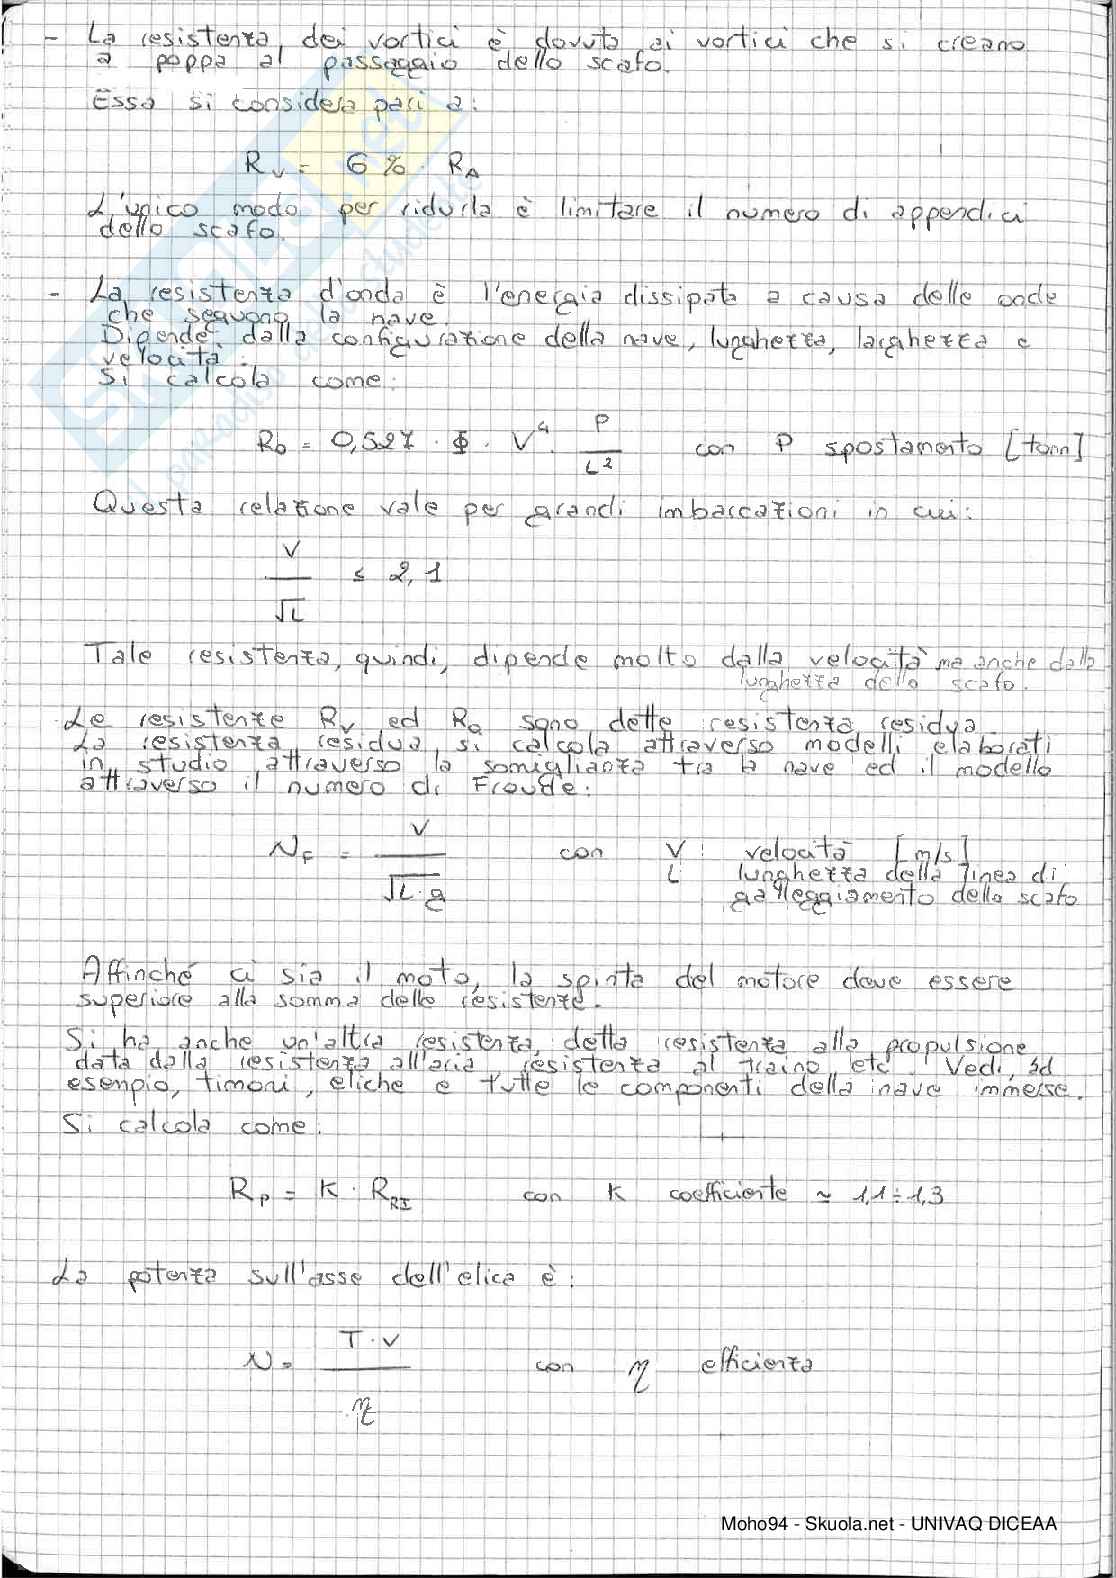 - La resistenza dei vortici è dovuta ai vortici che si creano
a poppa al passaggio dello scafo.
Essa si considera pari a:
R_V = 6% · R_A
L'unico modo per ridurla è limitare il numero di appendici
dello scafo.
- La resistenza d'onda è l'energia dissipata a causa delle onde
che seguono la nave.
Dipende dalla configurazione della nave, lunghezza, larghezza e
velocità.
Si calcola come:
R_O = 0,527 · Φ · V^4 · P / L^2 con P spostamento [tonn]
Questa relazione vale per grandi imbarcazioni in cui:
V / √L ≤ 2,1
Tale resistenza, quindi, dipende molto dalla velocità ma anche dalla
lunghezza dello scafo.
Le resistenze R_V ed R_O sono dette resistenza residua.
La resistenza residua si calcola attraverso modelli elaborati
in studio attraverso la somiglianza tra la nave ed il modello
attraverso il numero di Froude:
N_F = V / √L·g con V: velocità [m/s]
L: lunghezza della linea di
galleggiamento dello scafo
Affinché ci sia il moto, la spinta del motore deve essere
superiore alla somma delle resistenze.
Si ha anche un'altra resistenza, detta resistenza alla propulsione
data dalla resistenza all'aria, resistenza al traino, etc. Vedi, ad
esempio, timoni, eliche e tutte le componenti della nave immerse.
Si calcola come:
R_P = K · R_RI con K coefficiente ≃ 1,1÷1,3
La potenza sull'asse dell'elica è:
N = T·V / η con η efficienza
Moho94 - Skuola.net - UNIVAQ DICEAA